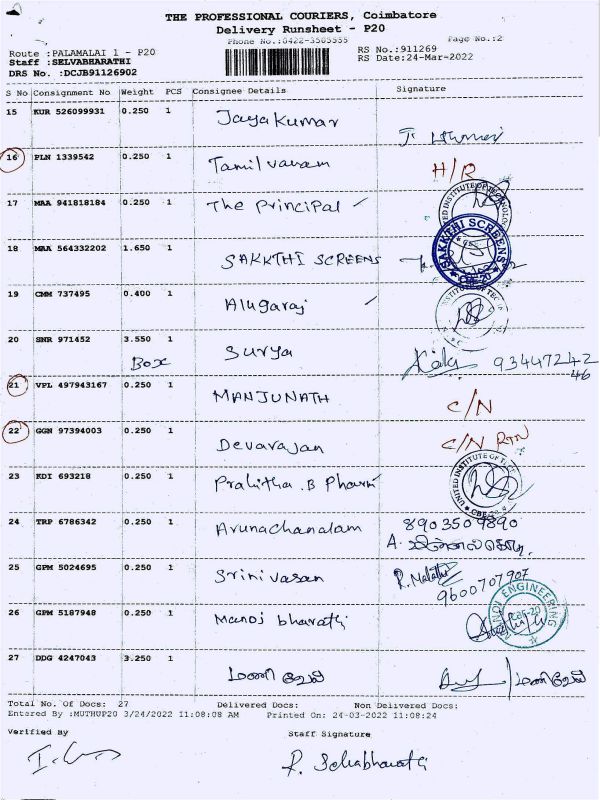 THE PROFESSIONAL COURIERS, Coimbatore
Delivery Runsheet - P20
Phone No.:0422-3505555 Page No.:2
Route :PALAMALAI 1 - P20 RS No.:911269
Staff :SELVABHARATHI RS Date:24-Mar-2022
DRS No. :DCJB91126902
S No Consignment No Weight PCS Consignee Details Signature
15 KUR 526099931 0.250 1 Jayakumar
16 PLN 1339542 0.250 1 Tamil vanam H/R
17 MAA 941818184 0.250 1 The Principal
UNITED INSTITUTE OF TECHNOLOGY
18 MAA 564332202 1.650 1 SAKKTHI SCREENS
SAKKTHI SCREENS CBE-20
19 CMM 737495 0.400 1 Alugaraj
20 SNR 971452 3.550 1 Surya 93447242
Box 46
21 VPL 497943167 0.250 1 MANJUNATH C/N
22 GGN 97394003 0.250 1 Devarajan C/N RTN
UNITED INSTITUTE OF TECH
23 KDI 693218 0.250 1 B Pharm
24 TRP 6786342 0.250 1 Arunachanalam 8903509890
25 GPM 5024695 0.250 1 Srinivasan R. Malathi
9600707907
26 GPM 5187948 0.250 1 Manoj bharathi
ENGINEERING CBE-20
27 DDG 4247043 3.250 1 மணி வேல்
Total No. Of Docs: 27 Delivered Docs: Non Delivered Docs:
Entered By :MUTHUP20 3/24/2022 11:08:08 AM Printed On: 24-03-2022 11:08:24
Verified By Staff Signature